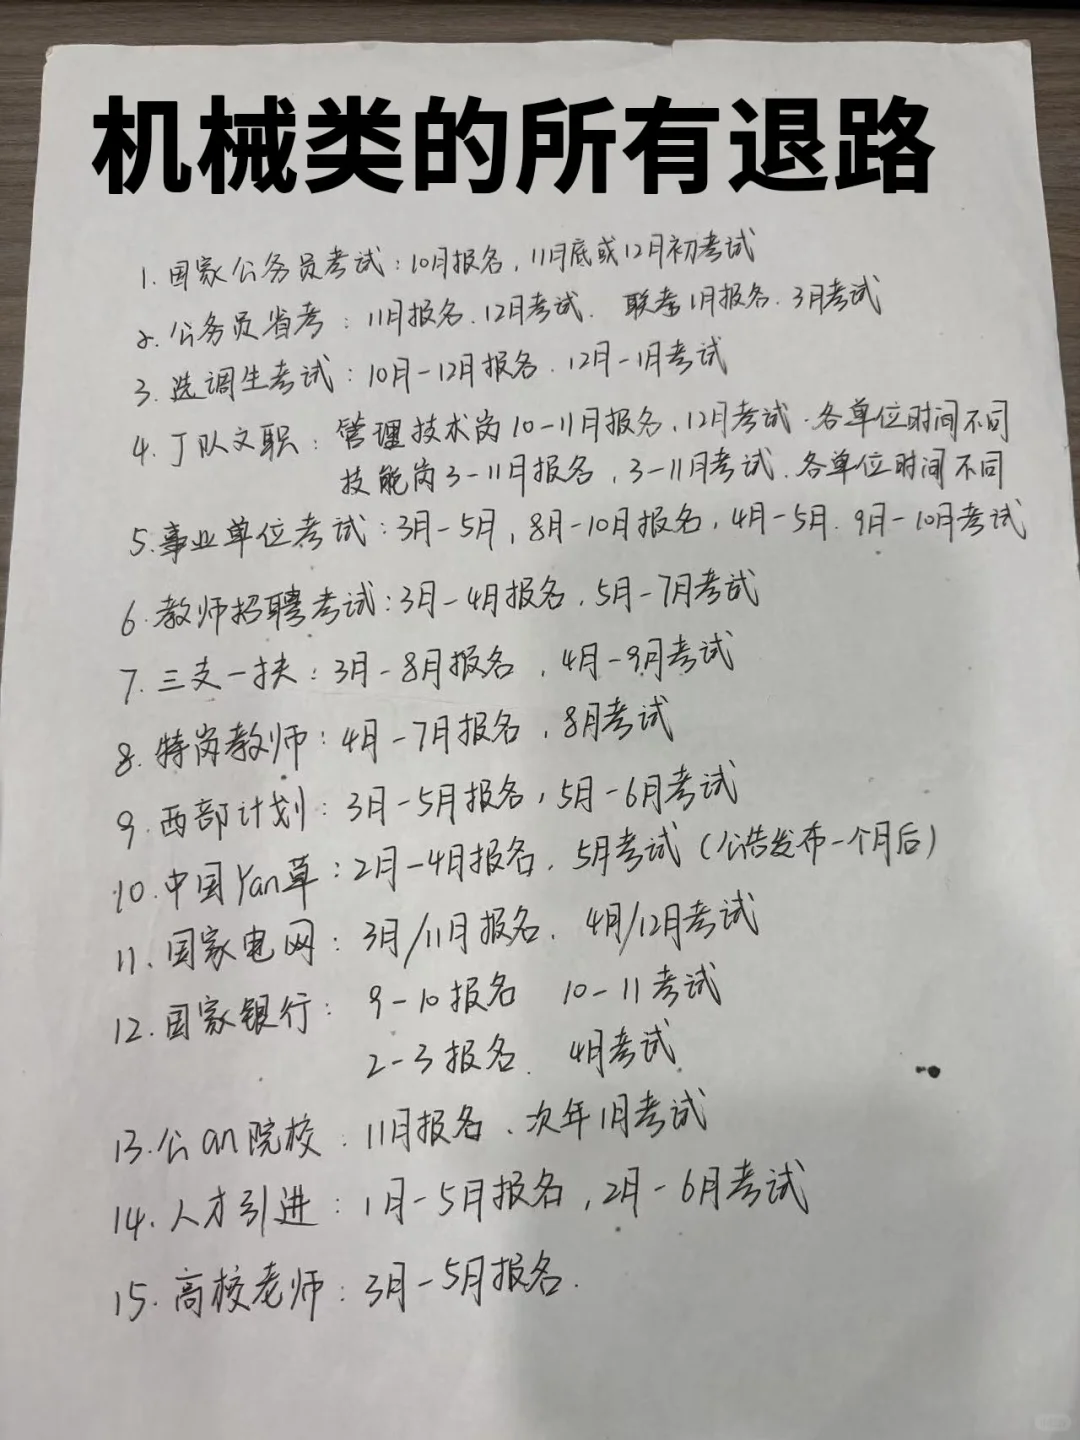 机械类的所有退路
1. 国家公务员考试：10月报名，11月底或12月初考试
2. 公务员省考：11月报名.12月考试. 联考1月报名.3月考试
3. 选调生考试：10月-12月报名.12月-1月考试
4. J队文职：管理技术岗10-11月报名，12月考试.各单位时间不同
技能岗3-11月报名，3-11月考试.各单位时间不同
5. 事业单位考试：3月-5月，8月-10月报名，4月-5月.9月-10月考试
6. 教师招聘考试：3月-4月报名，5月-7月考试
7. 三支一扶：3月-8月报名，4月-9月考试
8. 特岗教师：4月-7月报名，8月考试
9. 西部计划：3月-5月报名，5月-6月考试
10. 中国Yan草：2月-4月报名.5月考试（公告发布一个月后）
11. 国家电网：3月/11月报名. 4月/12月考试
12. 国家银行： 9-10报名 10-11考试
2-3报名. 4月考试
13. 公an院校：11月报名、次年1月考试
14. 人才引进：1月-5月报名，2月-6月考试
15. 高校老师：3月-5月报名.